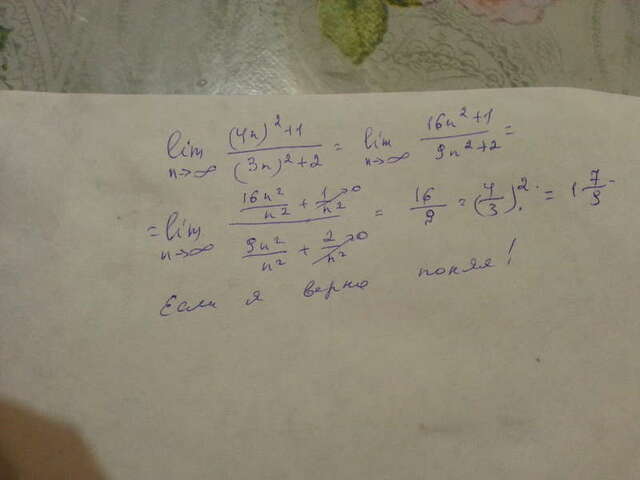 lim n→∞ (4n)²+1 / (3n)²+2 = lim n→∞ 16n²+1 / 9n²+2 =
= lim n→∞ (16n²/n² + 1/n² →0) / (9n²/n² + 2/n² →0) = 16/9 = (4/3)². = 1 7/9
Если я верно понял!